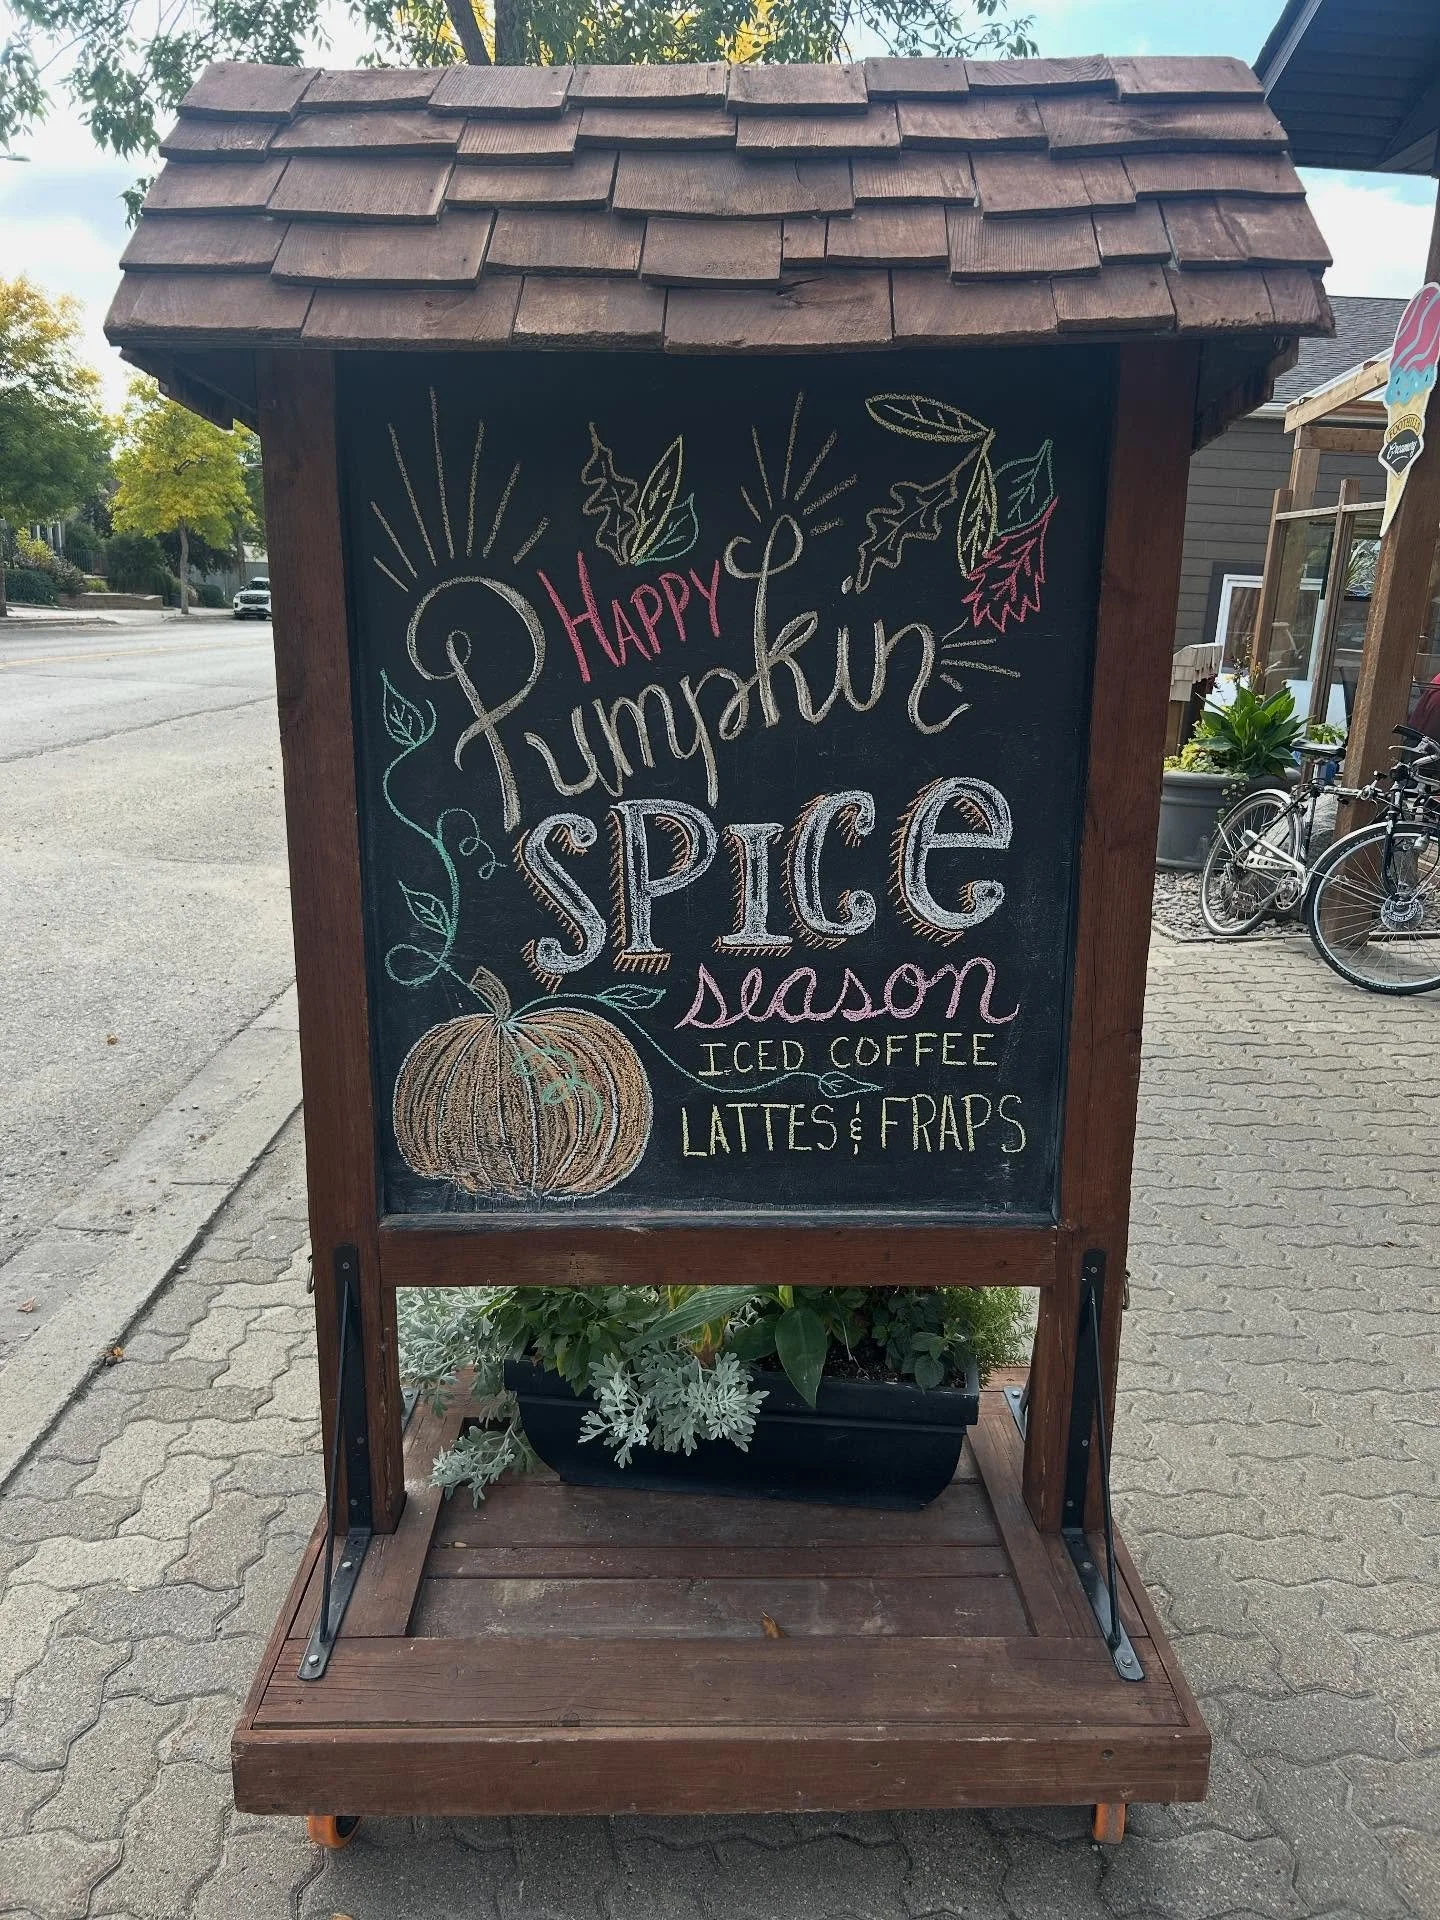 HAPPY
Pumpkin
SPICe
season
ICED COFFEE
LATTES & FRAPS
FOOTHILLS
Creamery